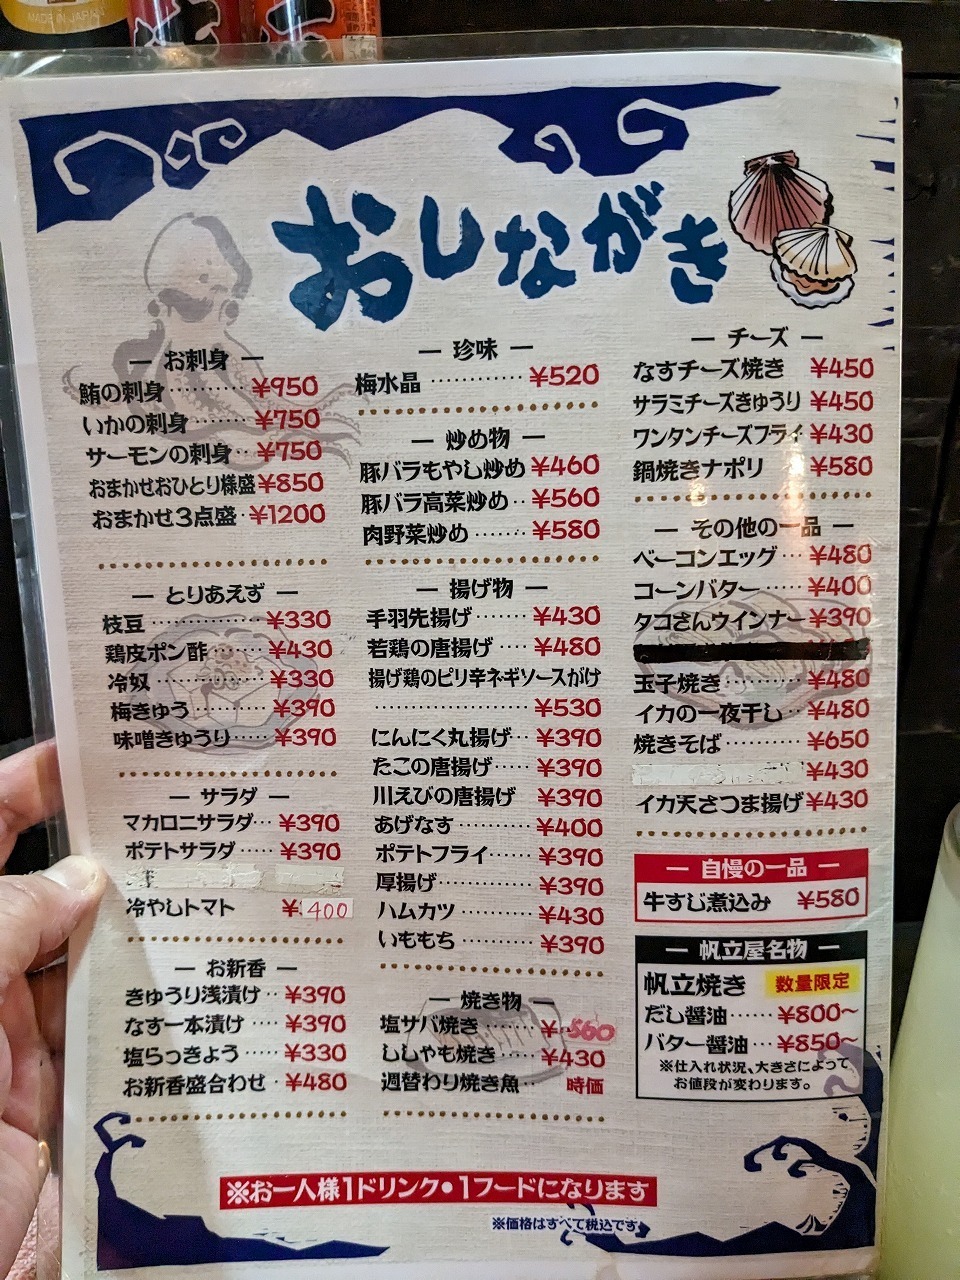 MADE IN JAPAN
おしながき
― お刺身 ―
鮪の刺身 ¥950
いかの刺身 ¥750
サーモンの刺身 ¥750
おまかせおひとり様盛 ¥850
おまかせ3点盛 ¥1200
― とりあえず ―
枝豆 ¥330
鶏皮ポン酢 ¥430
冷奴 ¥330
梅きゅう ¥390
味噌きゅうり ¥390
― サラダ ―
マカロニサラダ ¥390
ポテトサラダ ¥390
冷やしトマト ¥400
― お新香 ―
きゅうり浅漬け ¥390
なす一本漬け ¥390
塩らっきょう ¥330
お新香盛合わせ ¥480
― 珍味 ―
梅水晶 ¥520
― 炒め物 ―
豚バラもやし炒め ¥460
豚バラ高菜炒め ¥560
肉野菜炒め ¥580
― 揚げ物 ―
手羽先揚げ ¥430
若鶏の唐揚げ ¥480
揚げ鶏のピリ辛ネギソースがけ
¥530
にんにく丸揚げ ¥390
たこの唐揚げ ¥390
川えびの唐揚げ ¥390
あげなす ¥400
ポテトフライ ¥390
厚揚げ ¥390
ハムカツ ¥430
いももち ¥390
― 焼き物 ―
塩サバ焼き ¥560
ししゃも焼き ¥430
週替わり焼き魚 時価
― チーズ ―
なすチーズ焼き ¥450
サラミチーズきゅうり ¥450
ワンタンチーズフライ ¥430
鍋焼きナポリ ¥580
― その他の一品 ―
ベーコンエッグ ¥480
コーンバター ¥400
タコさんウインナー ¥390
玉子焼き ¥480
イカの一夜干し ¥480
焼きそば ¥650
¥430
イカ天さつま揚げ ¥430
― 自慢の一品 ―
牛すじ煮込み ¥580
― 帆立屋名物 ―
帆立焼き 数量限定
だし醤油 ¥800~
バター醤油 ¥850~
※仕入れ状況、大きさによって
お値段が変わります。
※お一人様1ドリンク•1フードになります
※価格はすべて税込です。